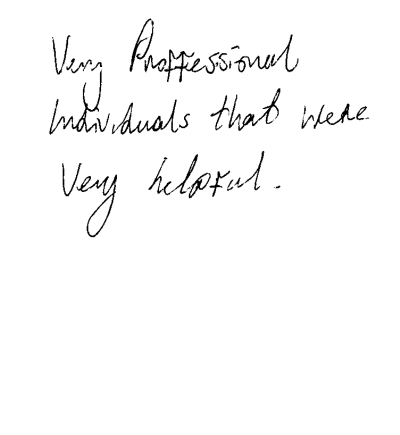 Very Proffessional
Individuals that were
Very helpful.